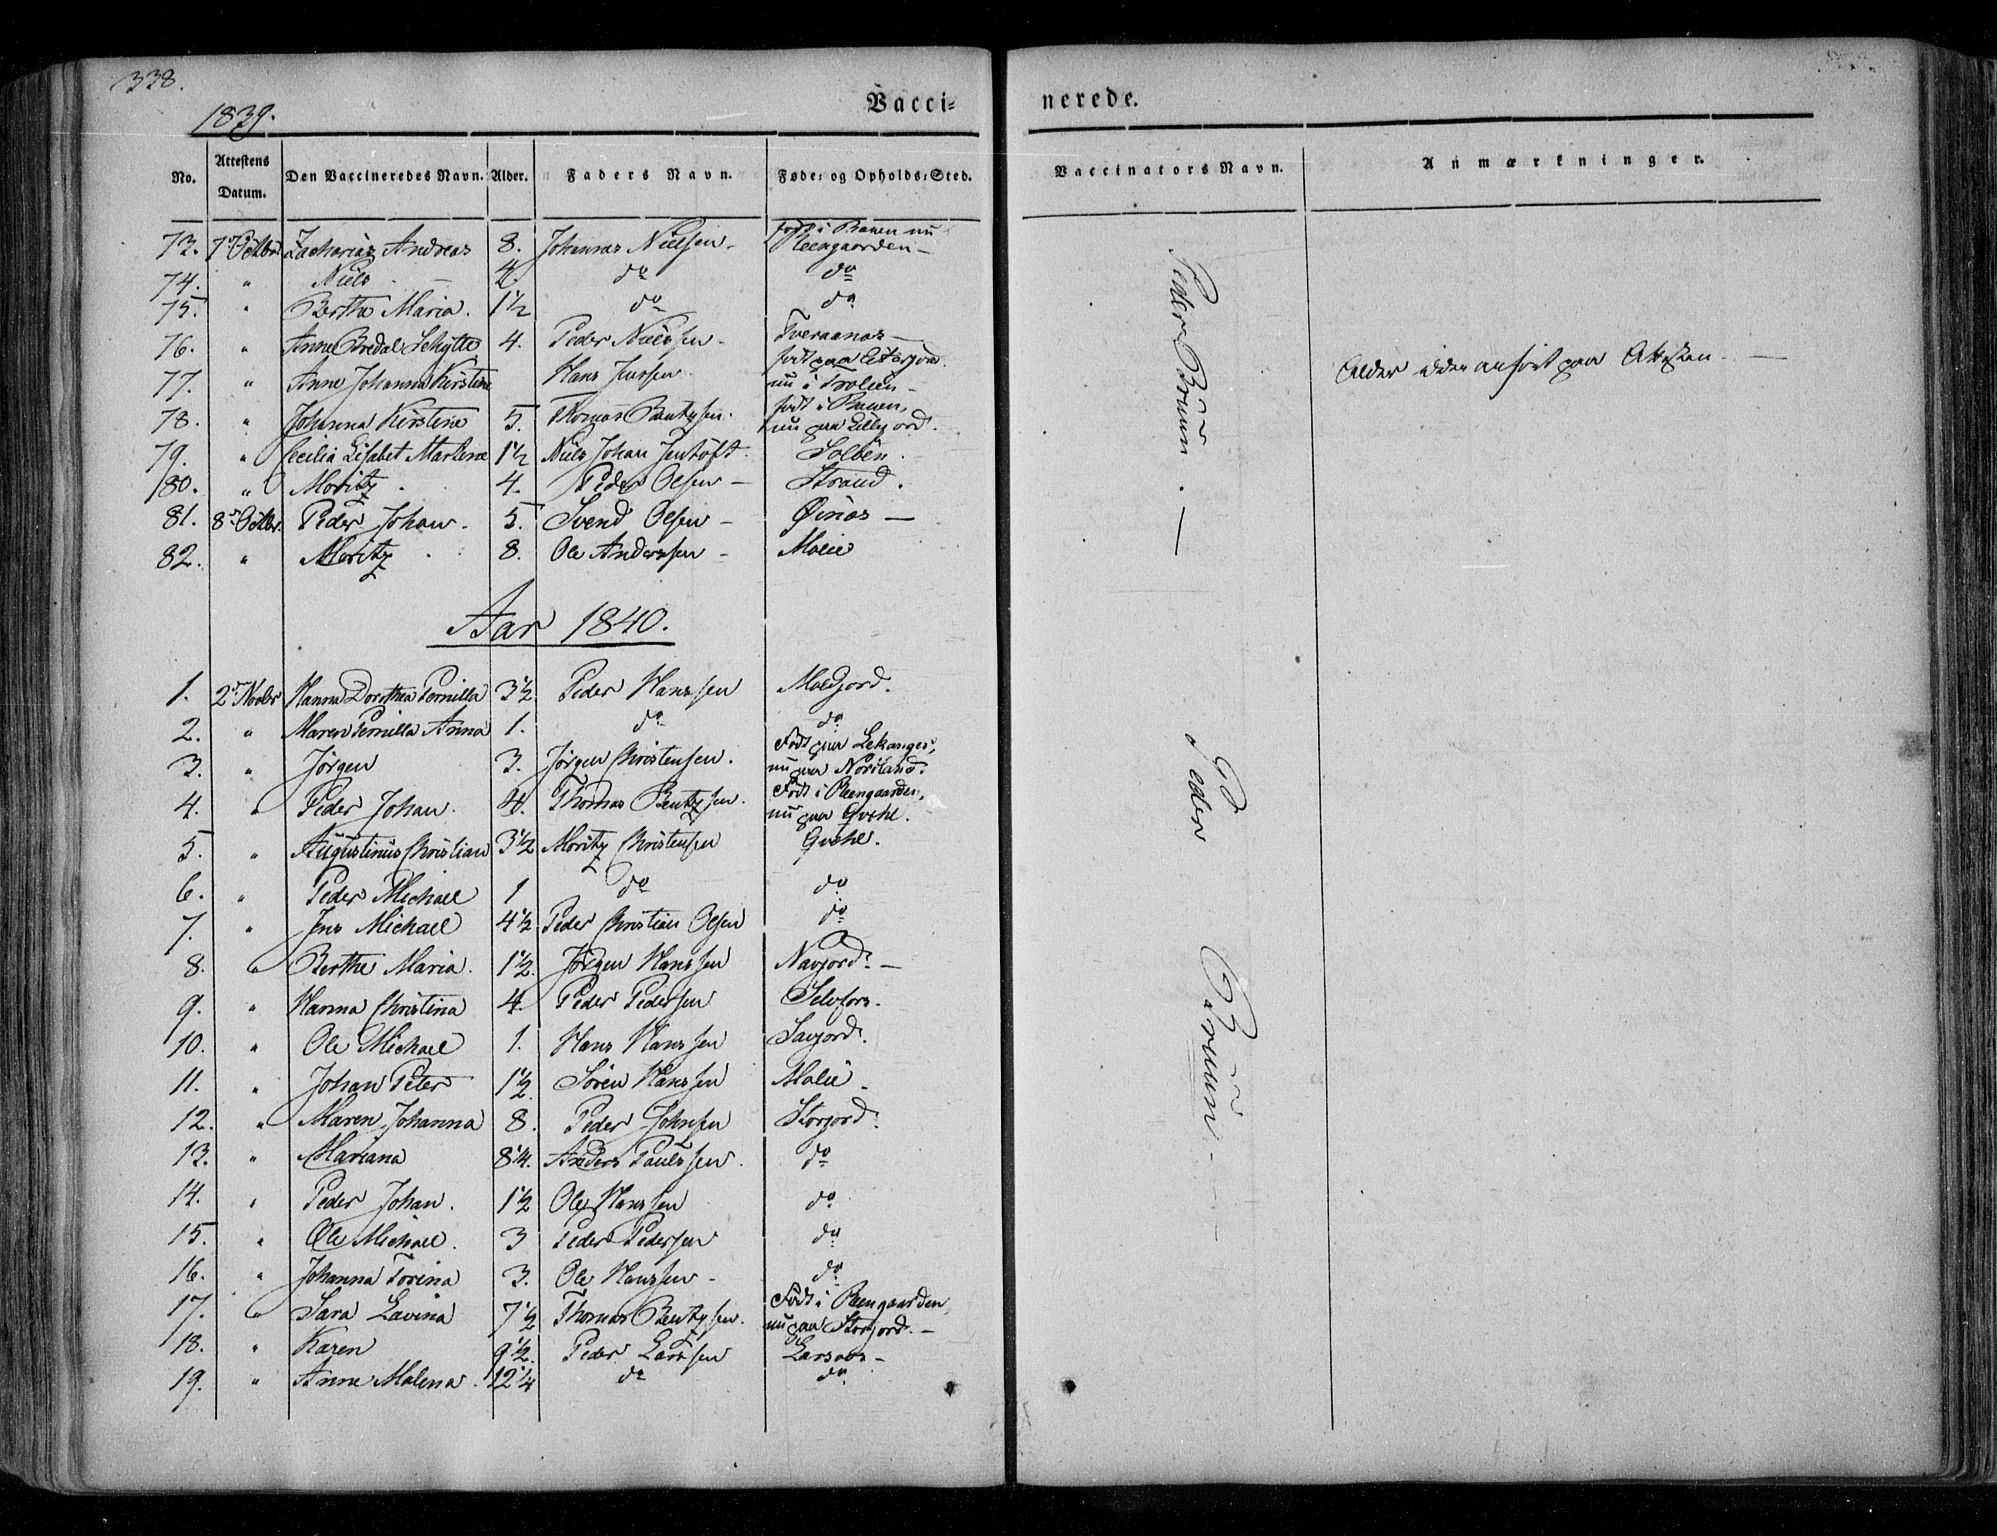 338.
1839.
Vacci-
nerede.
No. Attestens Datum. Den Vaccineredes Navn. Alder. Faders Navn. Føde- og Opholds-Sted. Vaccinators Navn. Anmærkninger.
73. 7 Octbr Zacharias Andreas 8. Johannes Nielsen - født i nu Reengaarden -
74. " Niels 4. do do
75. " Berthe Maria. 1½ do do
76. " Anne Bredal Schytte 4. Peder Nielssen - Tveraanæs -
77. " Anne Johanna Kirstine Hans Jenssen født paa nu i Trolien - Alder ikke anført paa Attesten -
78. " Johanna Kirstine 5. Thomas Bentzsen. født i nu paa Lillejord.
79. " Cecilia Lisabet Marlene 1½ Niels Johan Jentoft. Solbén.
80. " Moritz. 4. Peder Olsen - Strand.
81. 8 Octbr. Peder Johan. 5. Svend Olsen - Øinæs -
82. " Moritz. 8. Ole Anderssen - Molie
Peder Bruun. -
Aar 1840.
1. 2 Novbr Hanna Dorothea Pernilla 3½ Peder Hanssen Moldjord.
2. " Maren Pernilla Anna 1. do do
3. " Jörgen 3. Jörgen Christensen. Født paa Lekanger, nu paa Noviland.
4. " Peder Johan. 4. Thomas Bentzsen. Født i Reengaarden, nu paa Gvehl.
5. " Augustinus Christian 3½ Moritz Christensen Gvehl.
6. " Peder Michael 1 do do
7. " Jens Michael 4½ Peder Christian Olsen do
8. " Berthe Maria. 1½. Jörgen Hanssen Navjord. -
9. " Hanna Christina 4. Peder Pedersen Selvfors.
10. " Ole Michael 1. Hans Hanssen Savjord.
11. " Johan Peter 1½ Sören Hanssen Molie -
12. " Maren Johanna 8. Peder Johnsen Storjord.
13. " Mariana 8¼. Anders Paulssen. do
14. " Peder Johan. 1½ Ole Hanssen do
15. " Ole Michael. 3 Peder Pedersen do
16. " Johanna Torina 3. Ole Hanssen - do
17. " Sara Lavina 7½ Thomas Bentzsen. Født i Reengaarden, nu paa Storjord. -
18. " Karen 9½. Peder Larssen Larsos -
19. " Anne Malena. 12¼ do do
Peder Bruun. -